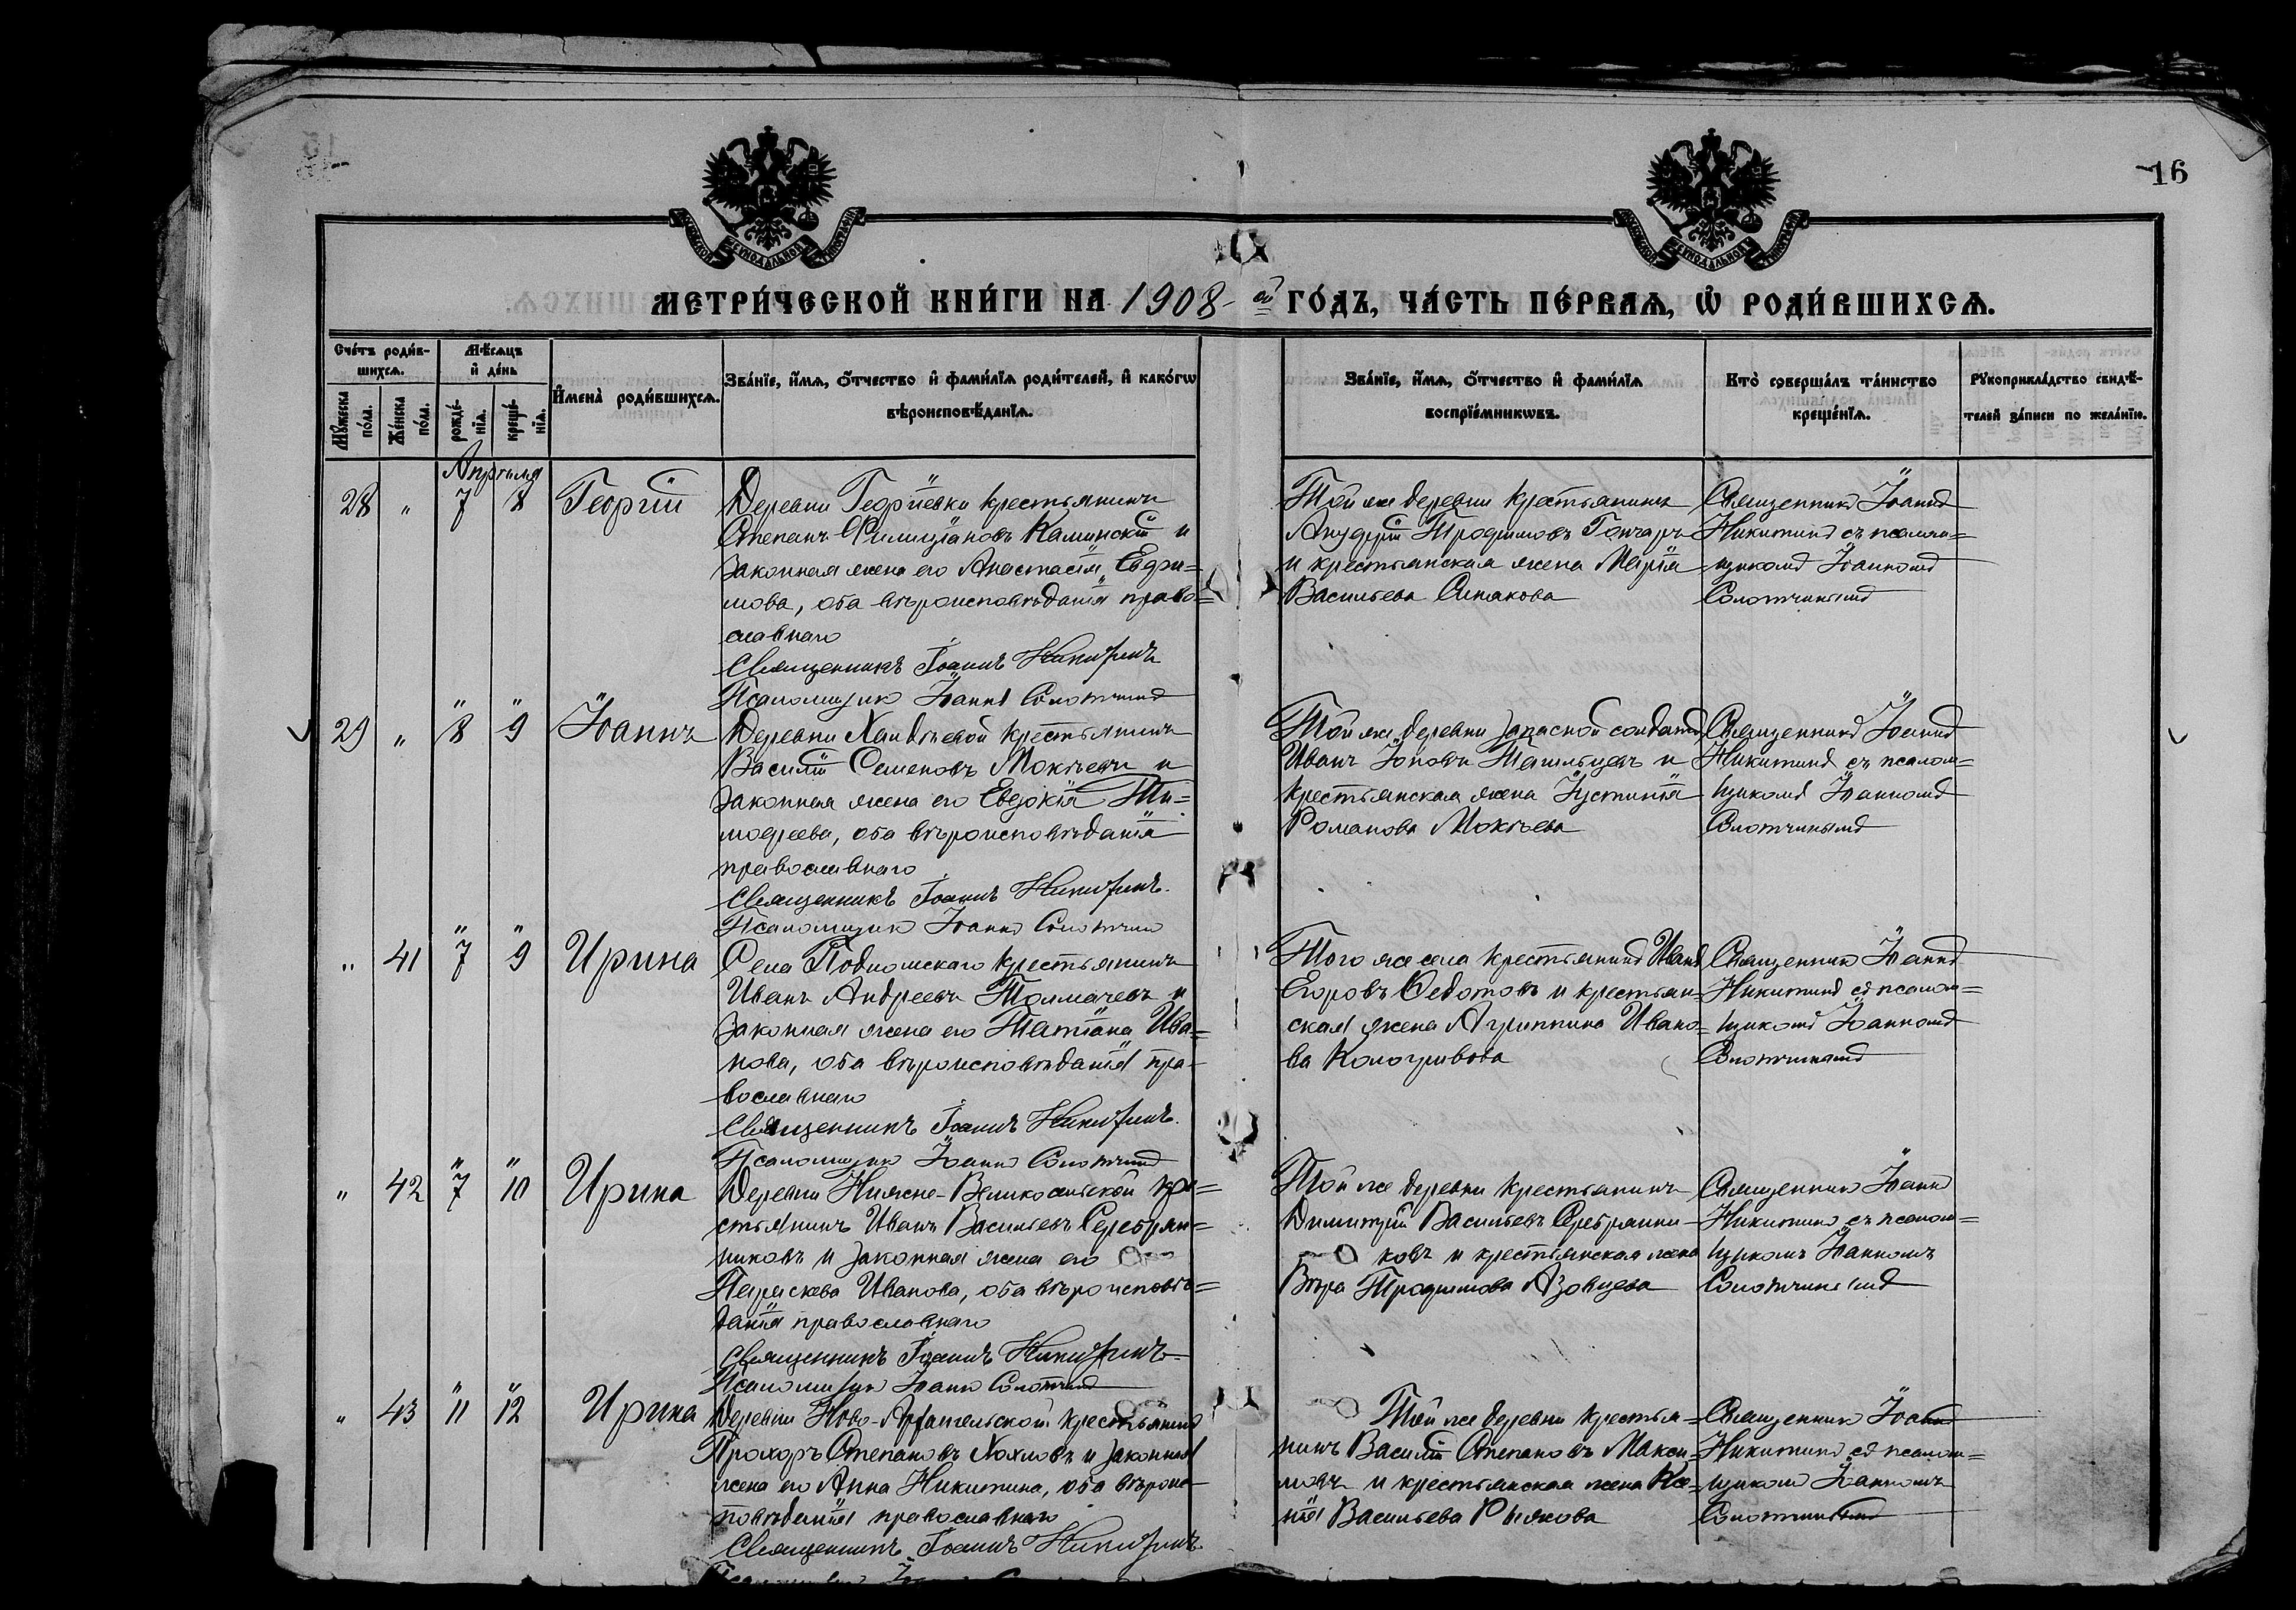 16
МЕТРИ́ЧЕСКОЙ КНИ́ГИ НА 1908-ой ГО́ДЪ, ЧА́СТЬ ПЕ́РВАѦ, Ѡ РОДИ́ВШИХСѦ.
Сче́тъ роди́в-
шихсѧ.
Мꙋ́жеска по́ла.
Же́нска по́ла.
Мѣ́сѧцъ
и҆ де́нь
рожде́-
нїѧ.
креще́-
нїѧ.
И҆мена̀ роди́вшихсѧ.
Зва́нїе, и҆́мѧ, ѻ҆́тчество и҆ фами́лїѧ роди́телей, и҆ како́гѡ
вѣроисповѣ́данїѧ.
Зва́нїе, и҆́мѧ, ѻ҆́тчество и҆ фами́лїѧ
воспрїе́мникѡвъ.
Кто̀ соверша́лъ та́инство
креще́нїѧ.
Рꙋкоприкла́дство свидѣ́-
телей за́писи по жела́нїю.
Апрѣля
28 " 7 8 Георгій
Деревни Георгіевки крестьянинъ
Степанъ Филиціановъ Каминскій и
законная жена его Анастасія Евфи=
мова, оба вѣроисповѣданія право=
славнаго
Священникъ Іоаннъ Никитинъ
Псаломщикъ Іоаннъ Солотчинъ
Той же деревни крестьянинъ
Трофимовъ Гончаръ
и крестьянская жена Марія
Васильева Синякова
Священникъ Іоаннъ
Никитинъ съ псалом=
щикомъ Іоанномъ
Солотчинымъ
29 " " 8 " 9 Іоаннъ
Деревни крестьянинъ
Василій Семеновъ Мокѣевъ и
законная жена его Евдокія Ти=
мофеева, оба вѣроисповѣданія
православнаго
Священникъ Іоаннъ Никитинъ.
Псаломщикъ Іоаннъ Солотчинъ
Той же деревни запасной солдатъ
Иванъ и
крестьянская жена Іустинія
Романова Мокѣева
Священникъ Іоаннъ
Никитинъ съ псалом=
щикомъ Іоанномъ
Солотчинымъ
" 41 " 7 " 9 Ирина
Села крестьянинъ
Иванъ Андреевъ Толмачевъ и
законная жена его Татіана Ива=
нова, оба вѣроисповѣданія пра-
вославнаго
Священникъ Іоаннъ Никитинъ.
Псаломщикъ Іоаннъ Солотчинъ
Того же села крестьянинъ Иванъ
Егоровъ Федотовъ и крестьян-
ская жена Агриппина Ивано=
ва Кологривова
Священникъ Іоаннъ
Никитинъ съ псалом=
щикомъ Іоанномъ
Солотчинымъ
" 42 " 7 " 10 Ирина
Деревни Нижне-Великосельской кре=
стьянинъ Иванъ Васильевъ Серебрян=
никовъ и законная жена его
Параскева Иванова, оба вѣроисповѣ=
данія православнаго
Священникъ Іоаннъ Никитинъ
Псаломщикъ Іоаннъ Солотчинъ
Той же деревни крестьянинъ
Димитрій Васильевъ Серебрянни-
ковъ и крестьянская жена
Вѣра Трофимова Азовцева
Священникъ Іоаннъ
Никитинъ съ псалом=
щикомъ Іоанномъ
Солотчинымъ
" 43 " 11 " 12 Ирина
Деревни крестьянинъ
Прохоръ Степановъ Хохловъ и законная
жена его Анна Никитина, оба вѣроис-
повѣданія православнаго
Священникъ Іоаннъ Никитинъ
Той же деревни крестья=
нинъ Василій Степановъ Макси=
мовъ и крестьянская жена Ксе=
нія Васильева
Священникъ Іоаннъ
Никитинъ съ псалом=
щикомъ Іоанномъ
Солотчинымъ